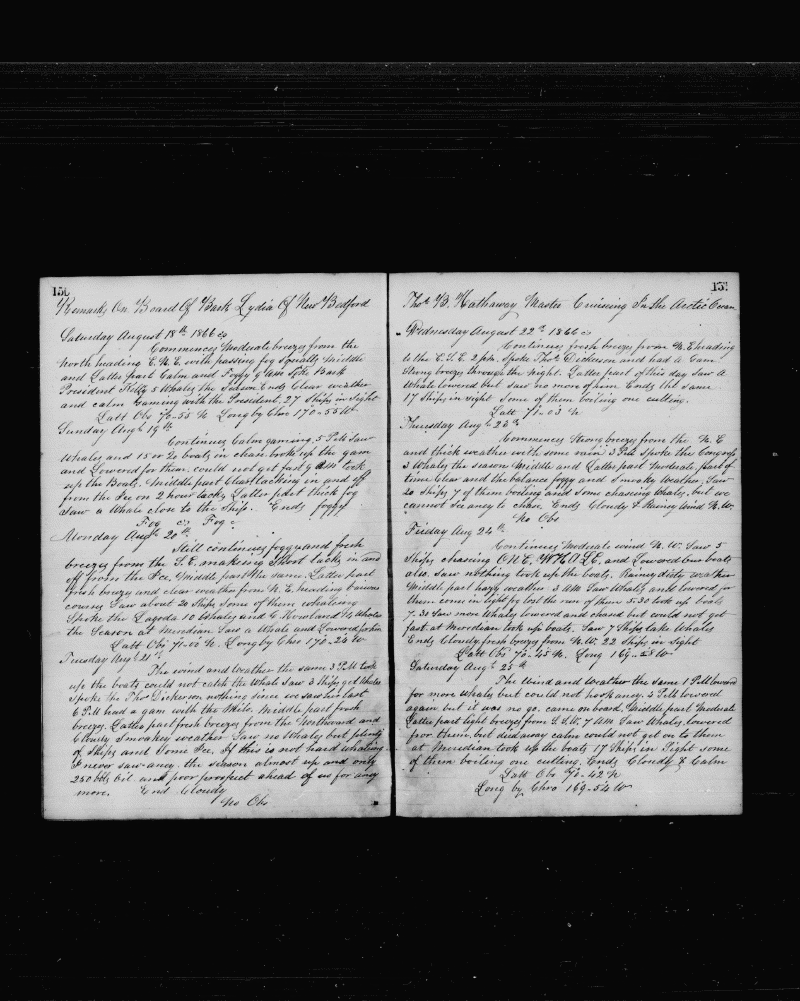 150
Remarks On Board Of Bark Lydia Of New Bedford
Saturday August 18th 1866
Commences Moderate breezes from the
North heading E.N.E. with passing fog squalls Middle
and Latter part Calm and Foggy 9 AM Spk. Bark
President Kelly 5 Whales the Season Ends Clear weather
and calm Gaming with the President. 27 Ships in Sight
Latt Obs 70-55 N Long by Chro 170-55 W
Sunday Augh 19th
Continues Calm gaming. 5 PM Saw
Whales and 15 or 20 boats in chase. broke up the gam
and Lowered for them. could not get fast 9 took
up the Boats. Middle part Clear tacking in and off
from the Ice on 2 hour tacks Latter part thick fog
Saw a Whale close to the Ship. Ends foggy
Fog Fog
Monday Augh 20th
Still continues foggy and fresh
breezes from the S.E. making Short tacks in and
off from the Ice, Middle part the same. Latter part
fresh breezes and clear weather from N.E. heading various
courses Saw about 20 Ships Some of them whaleing
Spoke the Lagoda 10 Whales and G Howland 14 Whales
the Season at Meredian Saw a Whale and Lowered for him
Latt Obs 71-00 N. Long by Chro 170-24 W
Tuesday Augh 21st
The wind and Weather the same 3 PM took
up the boats could not catch the Whale Saw 3 Ships get Whales
Spoke the Thos Dickerson nothing since we saw her last
6 PM had a gam with the Milo. Middle part fresh
breezes. Latter part fresh breezes from the Northward and
Cloudy Smoakey weather. Saw no Whales but plenty
of Ships and Some Ice. If this is not hard whaleing
I never saw aney. the Season almost up and only
250 bbls oil and poor prospect ahead of us for aney
more. End Cloudy
No Obs
151
Thos B. Hathaway Master Cruising In the Arctic Ocean
Wednesday August 22d 1866
Continues fresh breezes from N.E heading
to the E.S.E. 2 pm. Spoke Thos Dickerson and had a Gam
Strong breezes through the Night. Latter part of this day Saw a
Whale lowered but saw no more of him Ends the same
17 Ships in sight Some of them boiling one cutting.
Latt 71-03 N
Thursday Augh 23d
Commences Strong breezes from the N.E
and thick weather with some rain 3 PM Spoke the Congress
3 Whales the season Middle and Latter part Moderate, part of
time Clear and the balance foggy and Smoakey Weather, Saw
20 Ships 7 of them boiling and Some chasing Whales, but we
cannot See aney to chase. Ends Cloudy & Rainey Wind N.W.
No Obs
Friday Aug 24th
Continues Moderate wind N.W. Saw 5
Ships chasing ONE WHALE, and Lowered our boats
also. Saw nothing took up the boats. Rainey dirty weather
Middle part hazy weather 3 AM Saw Whales and lowered for
them come in light fog lost the run of them 5.30 took up boats
7.30 Saw more Whales lowered and chased but could not get
fast at Meredian took up boats. Saw 7 Ships take Whales
Ends Cloudy fresh breezes from N.W. 22 Ships in Sight
Latt Obs 70-45 N. Long 169-58 W
Saturday Augh 25th
The Wind and Weather the same 1 PM lowered
for more Whales but could not hook aney. 3 PM lowered
again but it was no go. came on board. Middle part Moderate
Latter part light breezes from S.S.W. 7 AM Saw Whales, lowered
for them, but died away calm could not get on to them
at Meredian took up the boats 17 Ships in Sight some
of them boiling one cutting. Ends Cloudy & Calm
Latt Obs 70-42 N
Long by Chro 169-54 W